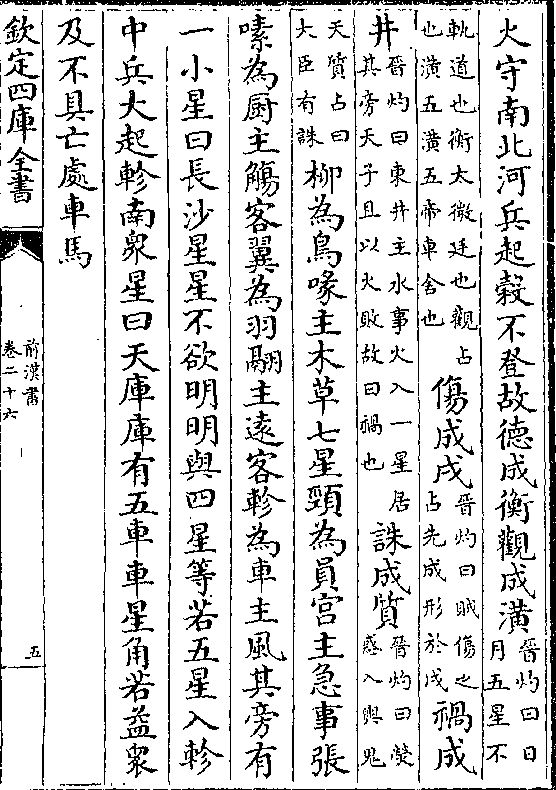 火守南北河兵起穀不登故德成衡觀成潢晉灼曰日月五星不
軌道也衡太微廷也觀占也潢五潢五帝車舍也傷成戉晉灼曰賊傷之占先成形於戉禍成
井晉灼曰東井主水事火入一星居其旁天子且以火敗故曰禍也誅成質晉灼曰熒惑入輿鬼
天質占曰大臣有誅柳為鳥喙主木草七星頸為員宫主急事張
嗉為厨主觴客翼為羽翮主逺客軫為車主風其旁有
一小星曰長沙星星不欲明明與四星等若五星入軫
中兵大起軫南衆星曰天庫庫有五車車星角若益衆
及不具亡處車馬
欽定四庫全書
前漢書
卷二十六
五